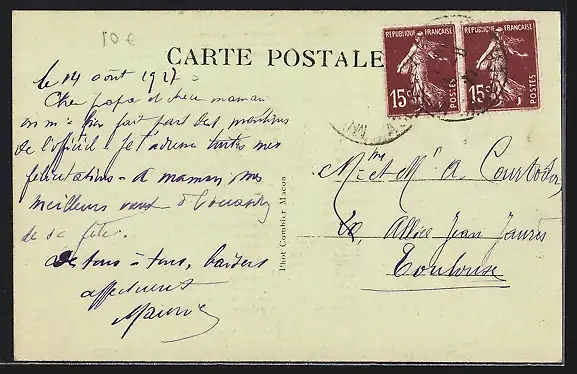 10 €
CARTE POSTALE
REPUBLIQUE FRANÇAISE
15c
POSTES
REPUBLIQUE FRANÇAISE
15c
POSTES
le 14 août 1927
Cher papa et chère maman
on m'a fait part des
de l'officiel. Je t'adresse toutes mes
félicitations - à maman mes
meilleurs vœux à l'occasion
de sa fête.
De tous à tous, baisers
affectueux
Maurice
Phot Combier Macon
Mme et Mr A.
Allées Jean Jaurès
Toulouse